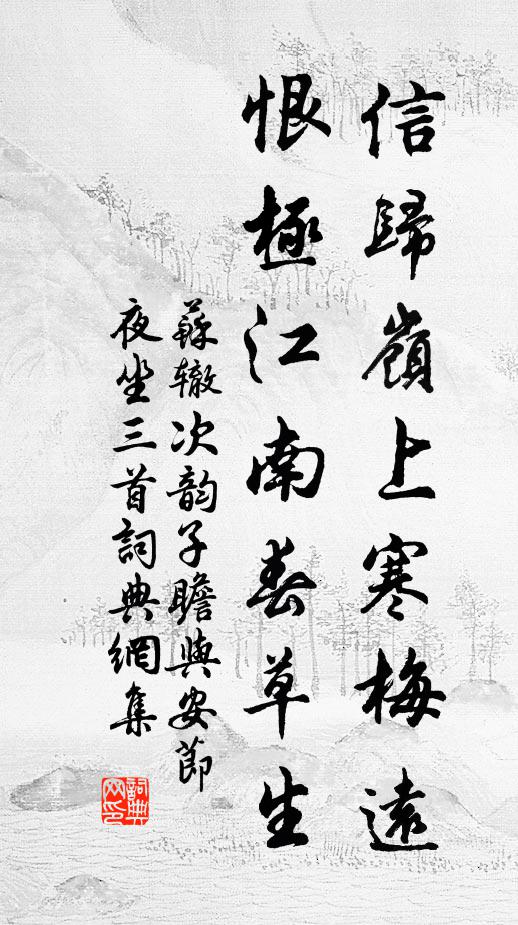 信歸嶺上寒梅遠
恨極江南春草生
蘇辙次韵子瞻與安節
夜坐三首詞典網集
詞典網印